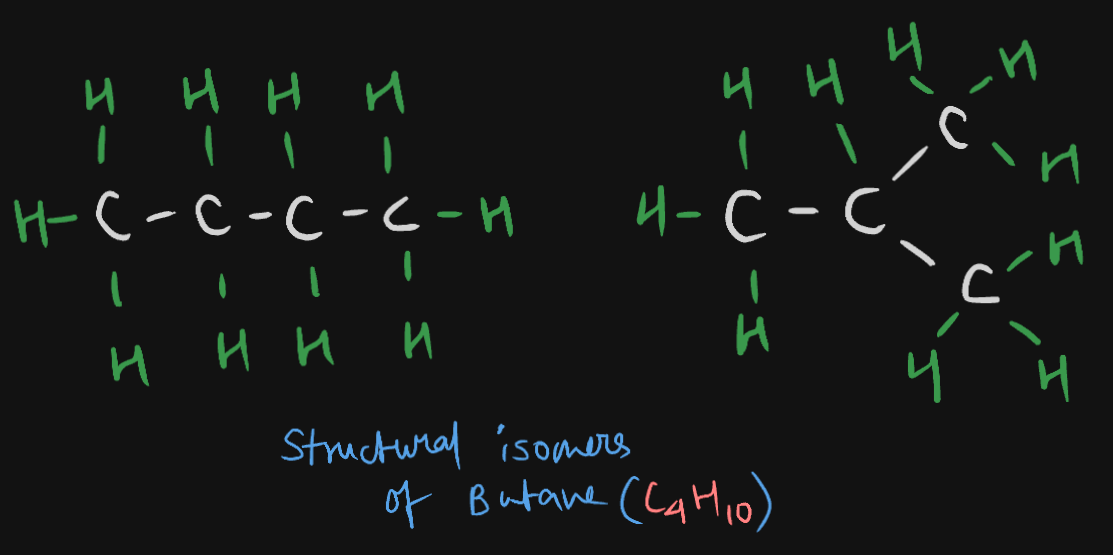 H H H H
H-C-C-C-C-H
H H H H
H H H H
C H
H-C-C
H
C
H
H H
Structural isomers
of Butane (C4H10)